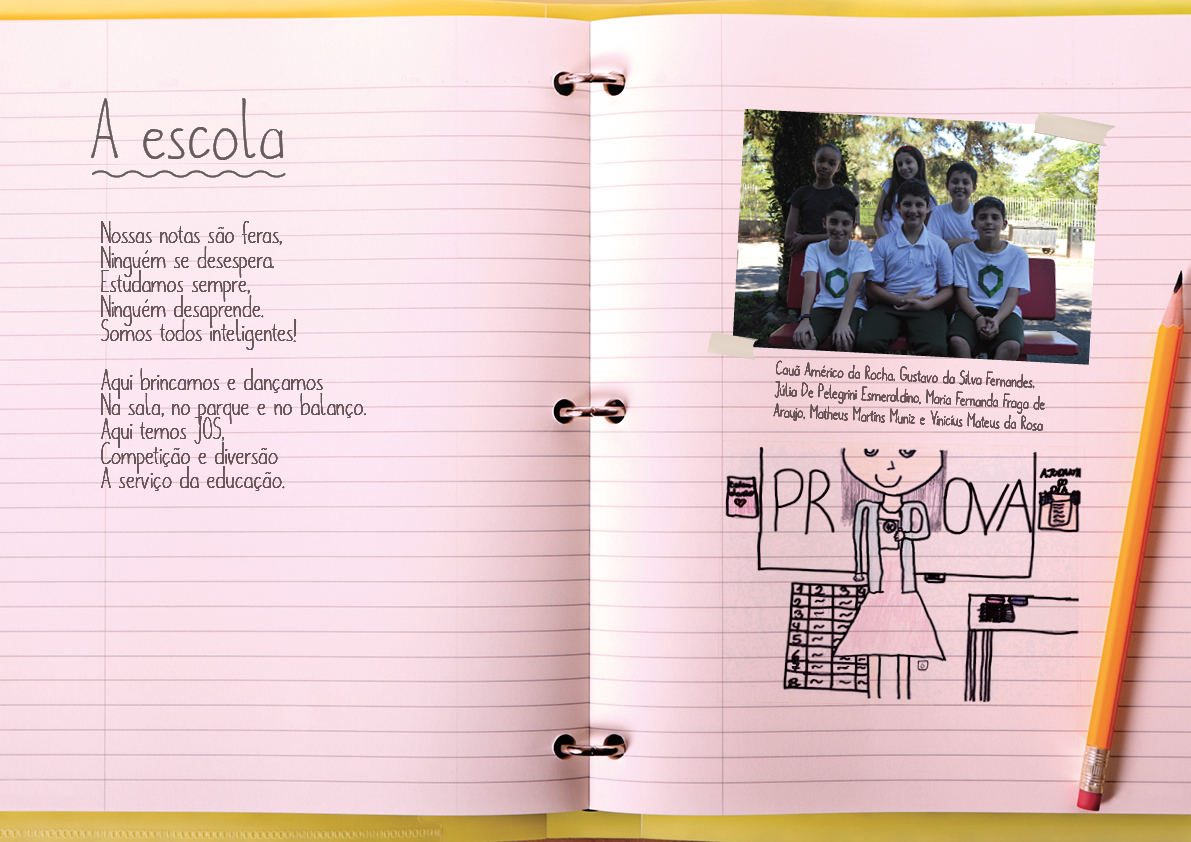 A escola
Nossas notas são feras,
Ninguém se desespera.
Estudamos sempre,
Ninguém desaprende.
Somos todos inteligentes!
Aqui brincamos e dançamos
Na sala, no parque e no balanço.
Aqui temos JOS,
Competição e diversão
A serviço da educação.
Cauã Américo da Rocha, Gustavo da Silva Fernandes,
Júlia De Pelegrini Esmeraldino, Maria Fernanda Fraga de
Araujo, Matheus Martins Muniz e Vinicius Mateus da Rosa
PR OVA
1 2 3 4
2
3
4
5
6
7
8